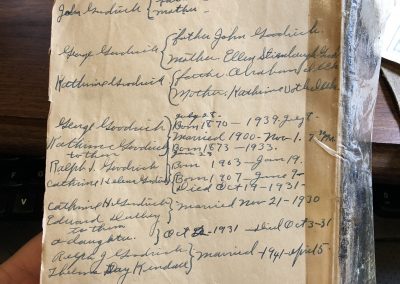 John Goodrich { father
mother -
George Goodrich { father John Goodrich.
Mother. Ellen
Kathrine Goodrich { father Abraham
Mother. Kathrine
July 28 -
George Goodrich } Born 1870 - 1939 July 9.
Married 1900 - Nov - 1.
Kathrine Goodrich } Born 1873 - 1933.
to them
Ralph J. Goodrich } Born 1903 - Jan 19.
Cathrine Helen Goodrich } Born 1907 - June 9 -
Died Oct 19 - 1931 -
Cathrine H. Goodrich } Married Nov 21 - 1930
Edward
to them
a daughter. } Oct 2 - 1931 - Died Oct 3 - 31
Ralph J. Goodrich } Married - 1941 - April 5 -
Thelma May Kendall